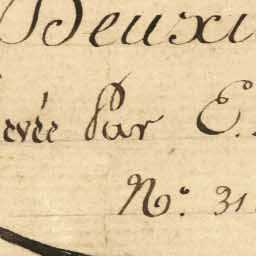 Deuxi
evée Par E.
N.° 31